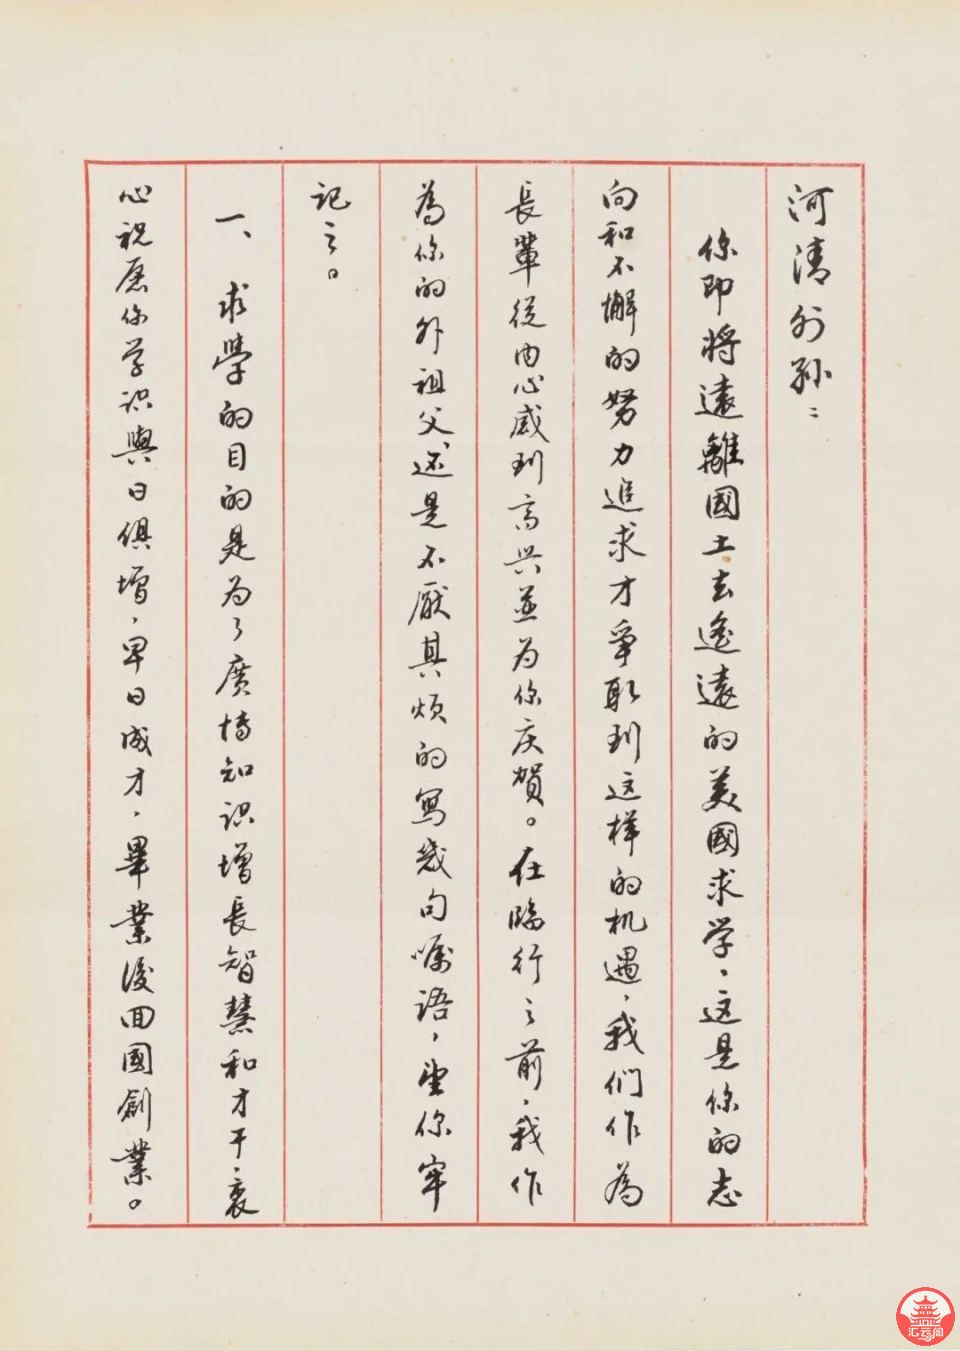 河清外孙：
你即将遠離國土去遙遠的美國求学，这是你的志
向和不懈的努力追求才爭取到这样的机遇，我们作為
長輩從内心感到高兴並为你庆賀。在臨行之前，我作
為你的外祖父，还是不厭其烦的寫几句嘱语，望你牢
记之。
一、求學的目的是为了廣博知识增長智慧和才干，衷
心祝愿你学识與日俱增，早日成才，畢業後回國創業。
汇云阁